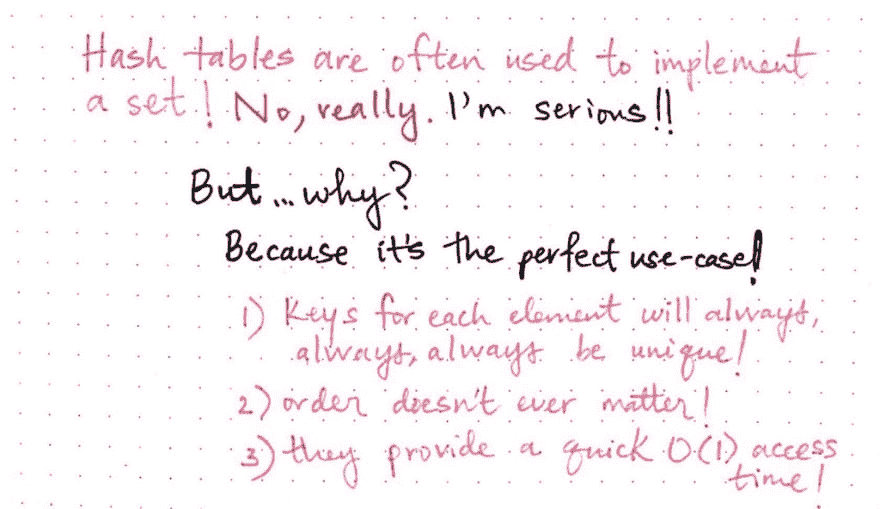 Hash tables are often used to implement
a set! No, really. I'm serious!!
But...why?
Because it's the perfect use-case!
1) Keys for each element will always,
always, always be unique!
2) order doesn't ever matter!
3) they provide a quick O(1) access
time!